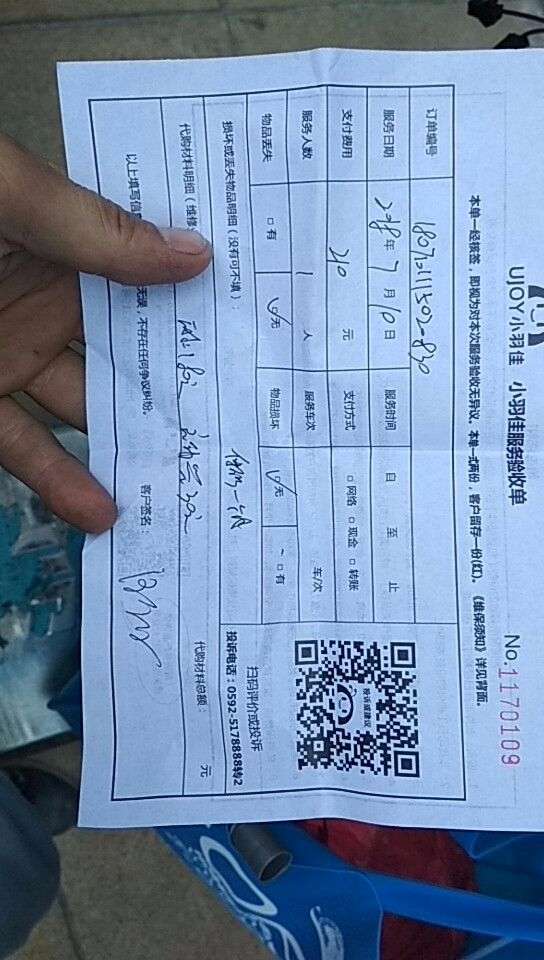 UJOY小羽佳 小羽佳服务验收单
No.1170109
本单一经核签，即视为对本次服务验收无异议。本单一式两份，客户留存一份(红)。《维保须知》详见背面。
订单编号 180710111502-830
服务日期 2018年7月10日 服务时间 自 至 止
支付费用 210 元 支付方式 □网络 □现金 □转账
服务人数 1 人 服务车次 车/次
物品丢失 □有 ☑无 物品损坏 ☑无 ~ □有
投诉或建议
扫码评价或投诉
投诉电话：0592-5178888转2
损坏或丢失物品明细（没有可不填）：
代购材料明细（维修
代购材料总额： 元
以上填写信息 无误，不存在任何争议纠纷。 客户签名：